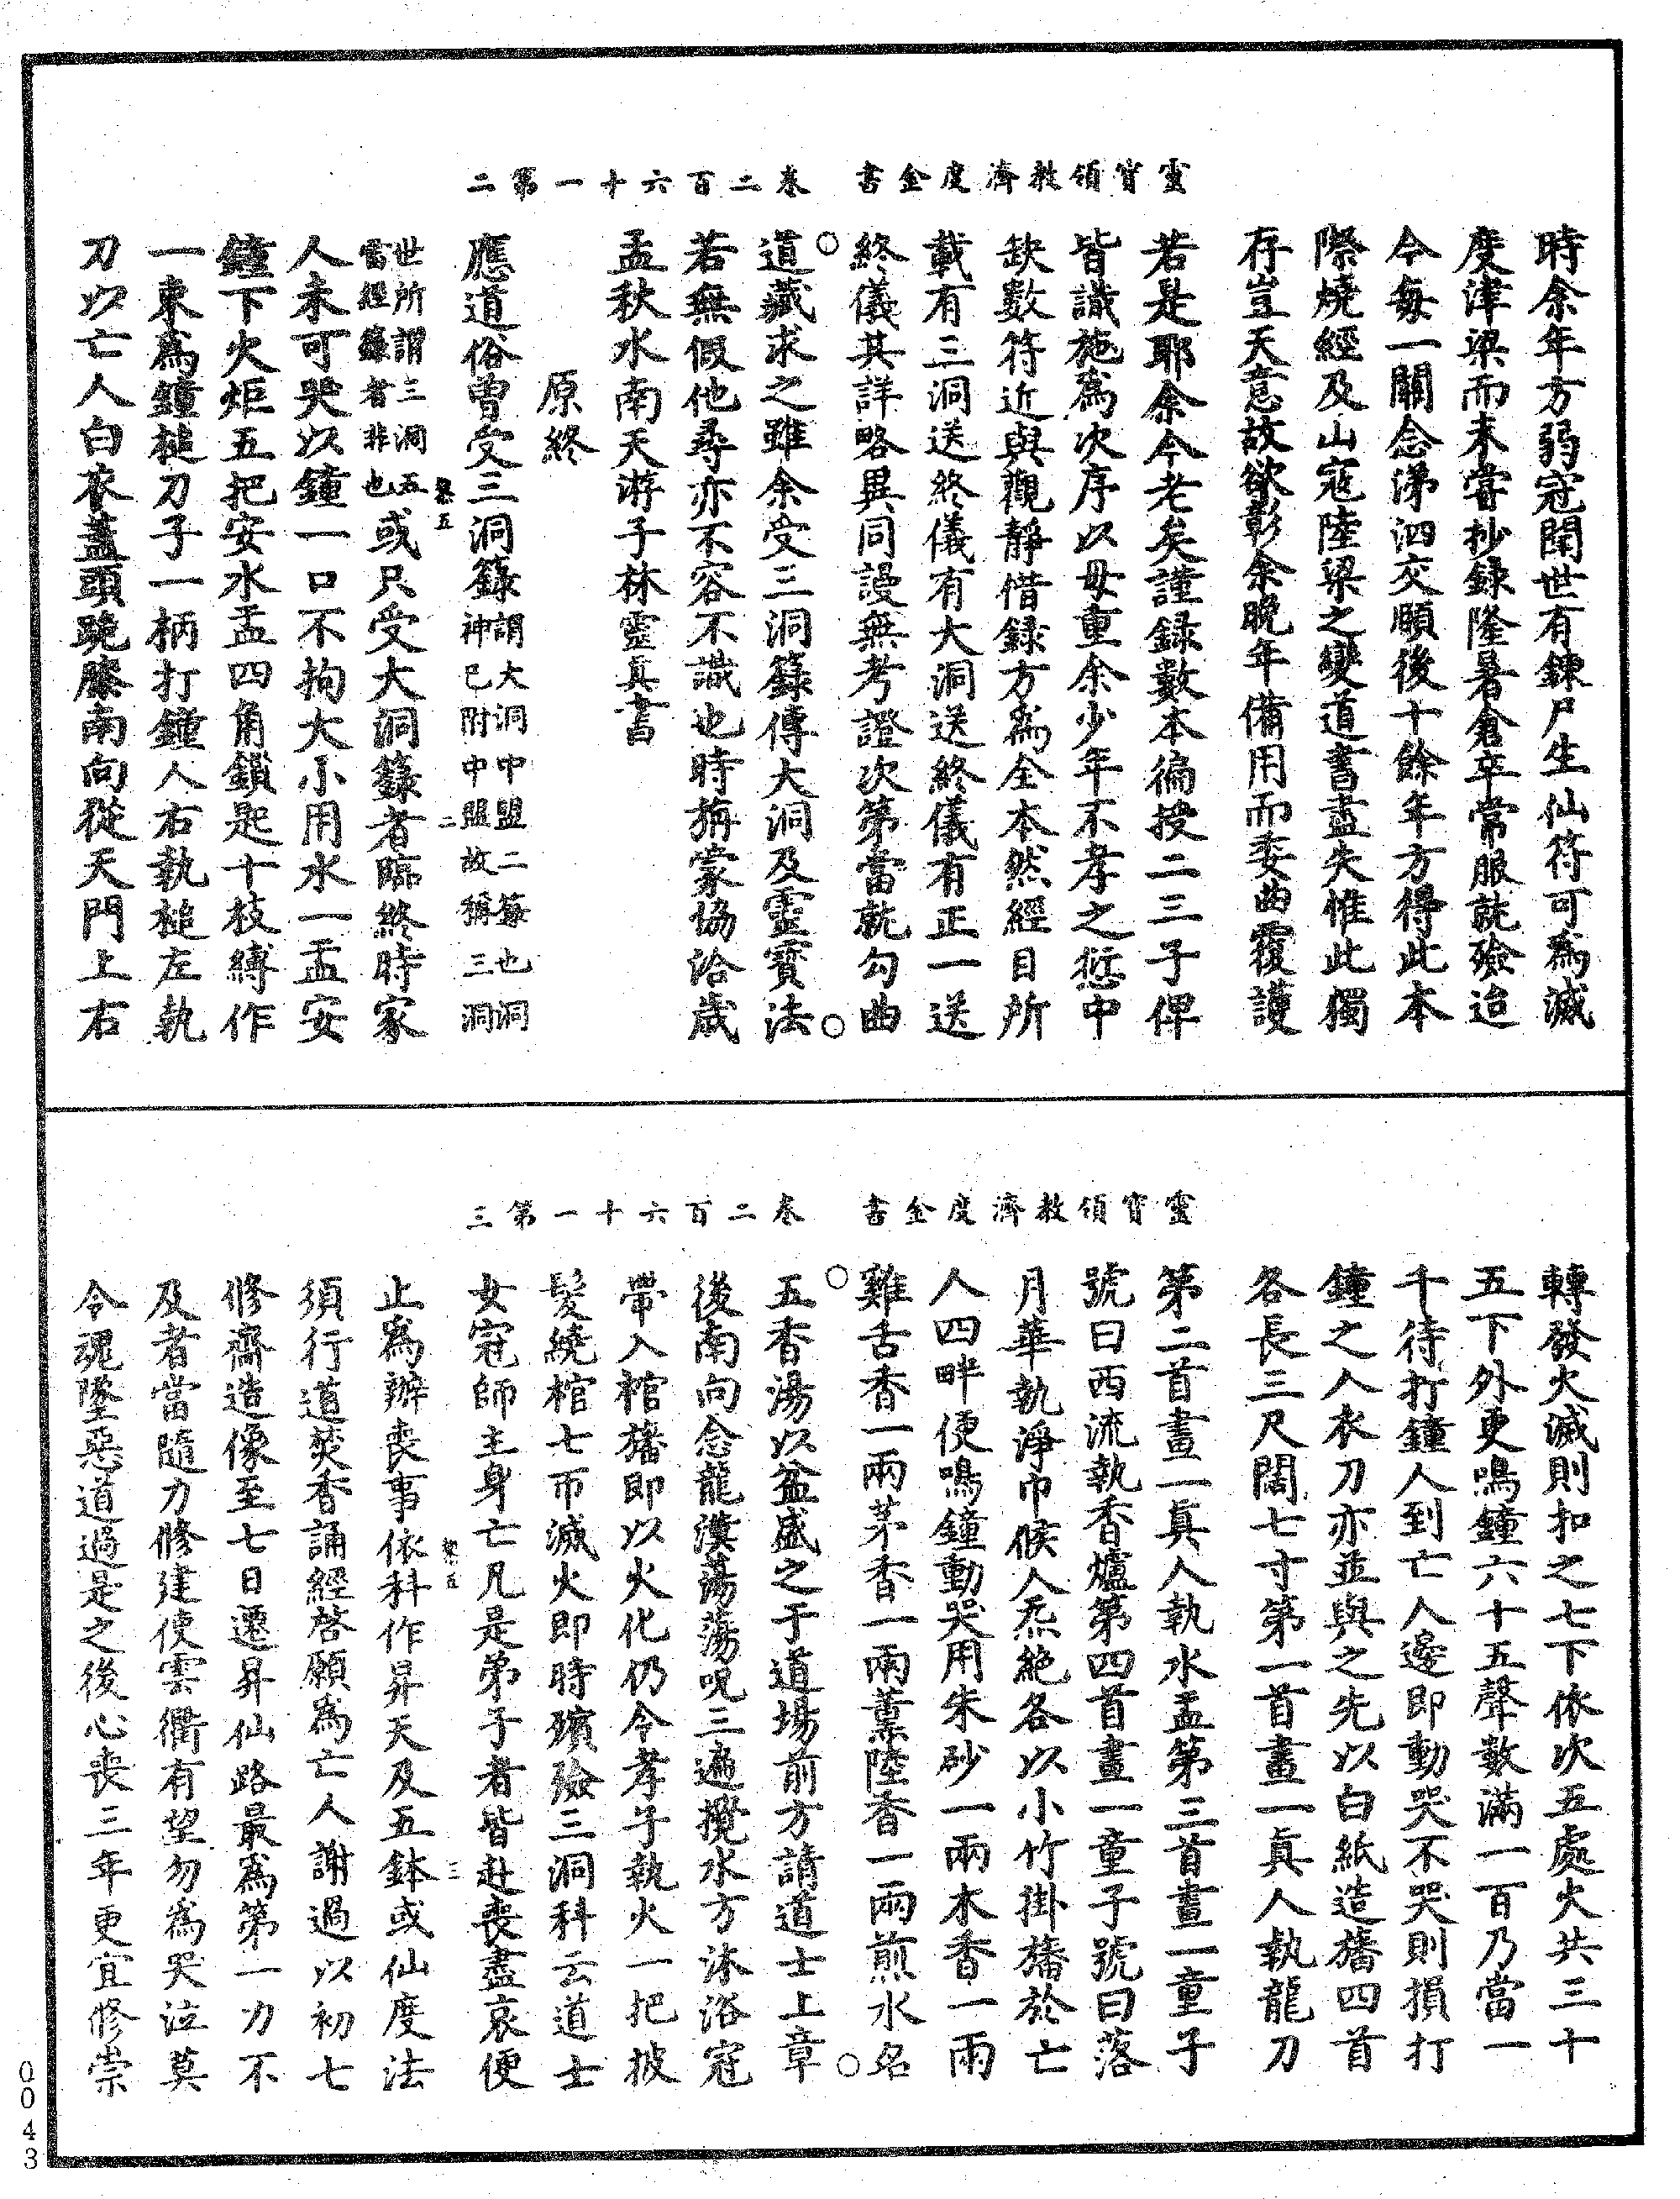 靈寶領教濟度金書　卷二百六十一第二
時余年方弱冠聞世有鍊尸生仙符可為滅
度津梁而未嘗抄録隆暑倉卒常服就殮迨
今每一關念涕泗交頤後十餘年方得此本
際燒經及山寇陸梁之變道書盡失惟此獨
存豈天意故欲彰余晚年備用而委曲覆護
若是耶余今老矣謹録數本徧授二三子俾
皆識施為次序以毋重余少年不孝之愆中
缺數符近與觀靜借録方為全本然經目所
載有三洞送終儀有大洞送終儀有正一送
終儀其詳略異同謾無考證次第當就勾曲
道藏求之雖余受三洞籙傳大洞及靈寶法
若無假他尋亦不容不識也時旃蒙協洽歲
孟秋水南天游子林靈真書
原終
應道俗曾受三洞籙謂大洞中盟二籙也洞神已附中盟故稱三洞
世所謂三洞五雷經籙者非也或只受大洞籙者臨終時家
人未可哭以鐘一口不拘大小用水一盂安
鐘下火炬五把安水盂四角鎖匙十枝縛作
一束為鐘槌刀子一柄打鐘人右執槌左執
刀以亡人白衣蓋頭跪膝南向從天門上右
靈寶領教濟度金書　卷二百六十一第三
轉發火滅則扣之七下依次五處火共三十
五下外更鳴鐘六十五聲數滿一百乃當一
千待打鐘人到亡人邊即動哭不哭則損打
鐘之人衣刀亦並與之先以白紙造旛四首
各長三尺闊七寸第一首畫一真人執龍刀
第二首畫一真人執水盂第三首畫一童子
號曰西流執香爐第四首畫一童子號曰落
月華執淨巾候人炁絕各以小竹掛旛於亡
人四畔便鳴鐘動哭用朱砂一兩木香一兩
雞舌香一兩茅香一兩薰陸香一兩煎水名
五香湯以盆盛之于道場前方請道士上章
後南向念龍漢蕩蕩呪三遍攪水方沐浴冠
帶入棺旛即以火化仍令孝子執火一把披
髮繞棺七帀滅火即時殯殮三洞科云道士
女冠師主身亡凡是弟子者皆赴喪盡哀便
止為辦喪事依科作昇天及五鉢或仙度法
須行道焚香誦經啓願為亡人謝過以初七
修齋造像至七日遷昇仙路最為第一力不
及者當隨力修建使雲衢有望勿為哭泣莫
令魂墜惡道過是之後心喪三年更宜修崇
0043